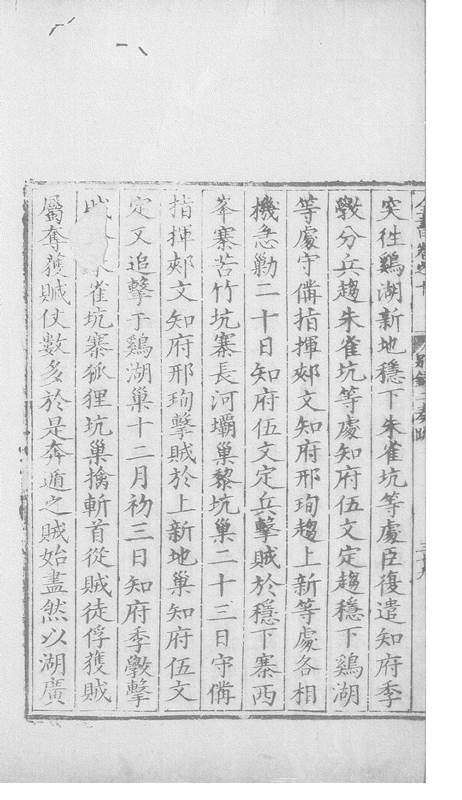 突往鷄湖新地穩下朱雀坑等處臣復遣知府季
斆分兵趨朱雀坑等處知府伍文定趨穩下鷄湖
等處守備指揮郟文知府邢珣趨上新等處各相
機急勦二十日知府伍文定兵擊賊於穩下寨西
峯寨苦竹坑寨長河壩巢黎坑巢二十三日守備
指揮郟文知府邢珣擊賊於上新地巢知府伍文
定又追擊于鷄湖巢十二月初三日知府季斆擊
雀坑寨狐狸坑巢擒斬首從賊徒俘獲賊
屬奪獲賊仗數多於是奔遁之賊始盡然以湖廣